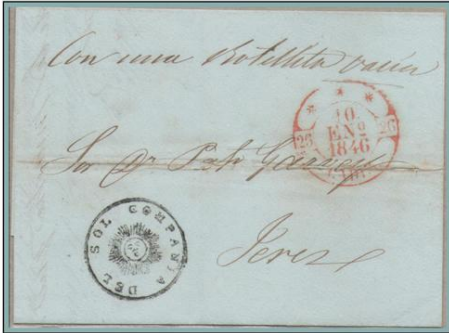 Con una botellita vacía
10
ENº
1846
Sor Dn Pedro
Jerez
COMPAÑIA DEL SOL